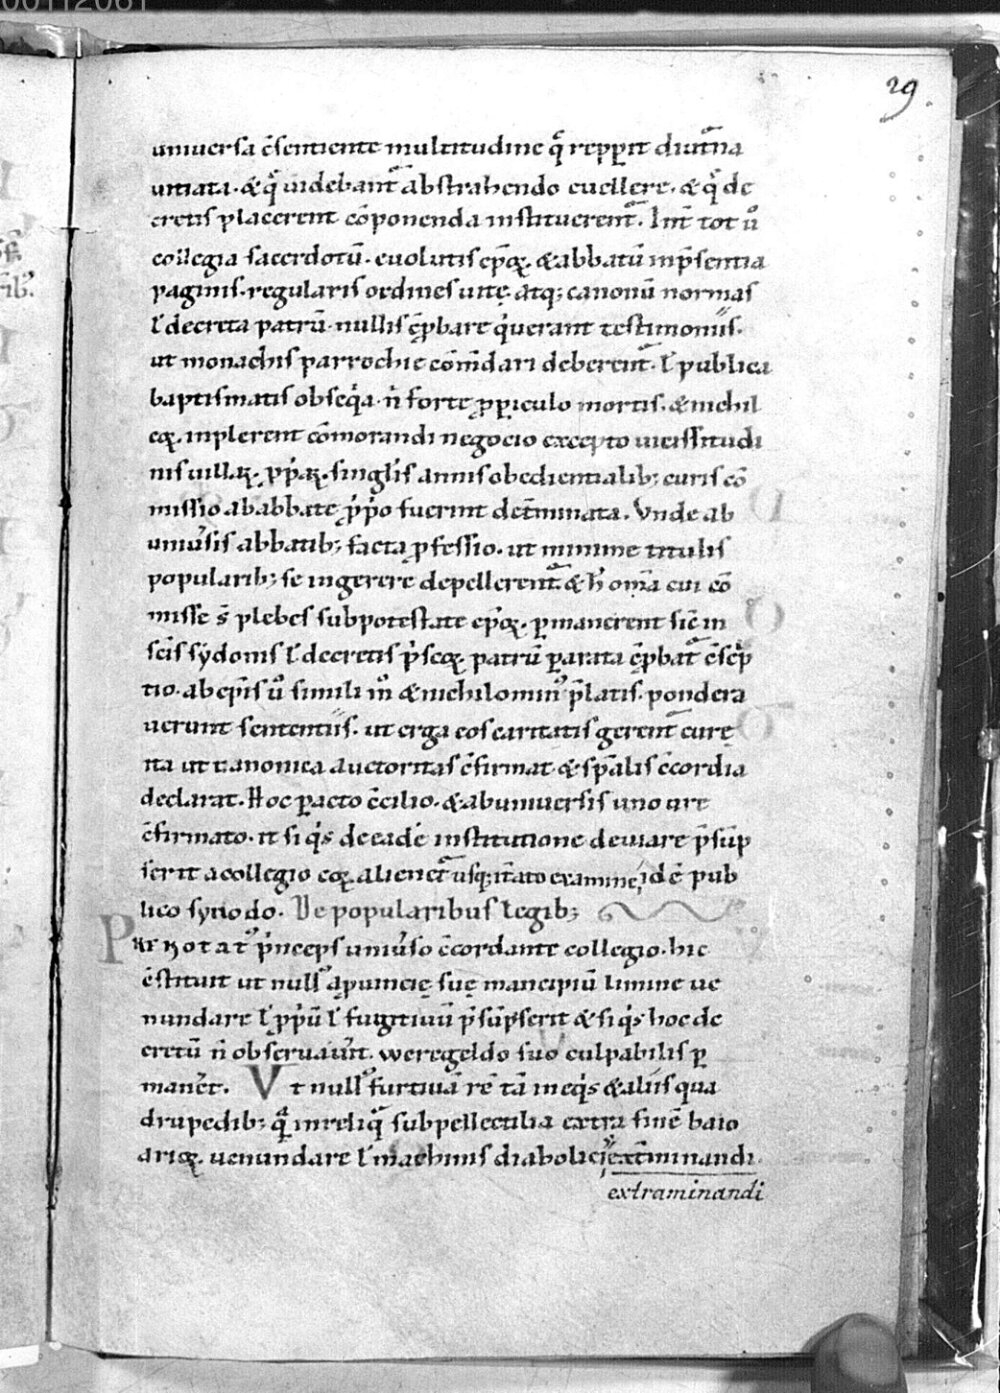 00112061
29
uniuersa c̄sentiente multitudine q̄ repꝑit diut̄na
uitiata · & q̄ uidebant᷑ abstrahendo euellere · & q̄ de
cretis placerent cōponenda instituerent᷑ · Int̄ tot ū
collegia sacerdotū · euolutis ep̄oꝝ · & abbatū inp̄sentia
paginis · regularis ordines uitę · atq; canonū normas
ł decreta patrū · nullis ꝓbare q̇uerant testimoniis ·
ut monachis parrochie cōm̄dari deberent᷑ · ł publica
baptismatis obseq̇a · n̄ forte ꝓ ꝑiculo mortis · & nichil
eoꝝ · inplerent cōmorandi negocio excepto uicissitudi
nis uillaꝝ · ꝓpaꝝ · singlis annis obedientialib; curis cō
missio ab abbate p̄p̄o fuerint det̄minata · Vnde ab
uniūsis abbatib; facta ꝓfessio · ut minime titulis
popularib; se ingerere depellerent᷑ & h̄ om̄a cui cō
misse s̄ plebes sub potestate ep̄oꝝ · ꝑmanerent sic̄ in
sc̄is sẏdonis ł decretis p̄scoꝝ patrū ꝑarata ꝓbat᷑ c̄sc̄p
tio · ab ep̄is ū simili m̊ & nichilomin᷒ p̄latis · pondera
uerunt sententiis · ut erga eos caritatis gerent᷑ curę
ita ut canonica auctoritas c̄firmat · & sp̄alis c̄cordia
declarat · Hoc ꝑacto c̄cilio · & ab uniuersis uno ore
c̄firmato · it si q̇s de eadē institutione deuiare p̄sūp
serit a collegio eoꝝ alienet᷑ usq; it̄ato examine idē pub
lico synodo · De popularibus legib;
PREnotat᷒ p̄nceps uniūso c̄cordante collegio · hic
c̄stituit ut null᷒ a ꝓuincię suę mancipiū limine ue
nundare ł ꝓpiū ł fugitiuū p̄sūpserit & si q̇s hoc de
cretū n̄ obseruauīt · weregeldo suo culpabilis ꝑ
manet̄ · Vt null᷒ furtiuā rē tā in eq̇s & aliis qua
drupedib; q̄ in reliq̇ subpellectilia extra finē baio
arioꝝ · uenundare ł machinis diabolicis ext̄minandi ·
extraminandi